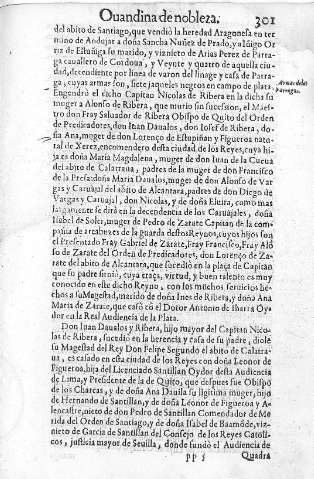 Ouandina de nobleza. 301
del abito de Santiago, que vendiò la heredad Aragonesa en ter
mino de Andujar a doña Sancha Nuñez de Prado, y a Iñigo Or
tiz de Estuñiga su marido, y viznieto de Arias Perez de Parra-
ga cauallero de Cordoua, y Veynte y quatro de aquella ciu-
dad, decendiente por linea de varon del linage y casa de Parra-
ga, cuyas armas son, siete jaqueles negros en campo de plata.
Armas de los
Parragas.
Engendrò el dicho Capitan Nicolas de Ribera en la dicha su
muger a Alonso de Ribera, que murio sin sucession, el Maes-
tro don Fray Saluador de Ribera Obispo de Quito del Orden
de Predicadores, don Iuan Daualos, don Iosef de Ribera, do-
ña Ana, muger de don Lorenço de Estupiñan y Figueroa natu-
ral de Xerez, encomendero desta ciudad de los Reyes, cuya hi-
ja es doña Maria Magdalena, muger de don Iuan de la Cueua
del abito de Calatraua, padres de la muger de don Francisco
de la Presa: doña Maria Daualos, muger de don Alonso de Var-
gas y Caruajal del abito de Alcantara, padres de don Diego de
Vargas y Caruajal, don Nicolas, y de doña Eluira, como mas
largamente se dirà en la decendencia de los Caruajales, doña
Isabel de Soler, muger de Pedro de Zarate Capitan de la com-
pañia de arcabuzes de la guarda destos Reynos, cuyos hijos son
el Presentado Fray Gabriel de Zarate, Fray Francisco, Fray Alõ
so de Zarate del Orden de Predicadores, don Lorenço de Za-
rate del abito de Alcantara, que sucediò en la plaça de Capitan
que su padre siruiò, cuya traça, virtud, y buen talento es muy
conocido en este dicho Reyno, con los muchos seruicios he-
chos a su Magestad, marido de doña Ines de Ribera, y doña Ana
Maria de Zarate, que casò cõ el Dotor Antonio de Ibarra Oy-
dor en la Real Audiencia de la Plata.
Don Iuan Daualos y Ribera, hijo mayor del Capitan Nico-
las de Ribera, sucediò en la herencia y casa de su padre, diole
su Magestad del Rey Don Felipe Segundo el abito de Calatra-
ua, es casado en esta ciudad de los Reyes con doña Leonor de
Figueroa, hija del Licenciado Santillan Oydor desta Audiencia
de Lima, y Presidente de la de Quito, que despues fue Obispo
de los Charcas, y de doña Ana Dauila su ligitima muger, hijo
de Hernando de Santillan, y de doña Leonor de Figueroa y A-
lencastre, nieto de don Pedro de Santillan Comendador de Me
rida del Orden de Santiago, y de doña Isabel de Baamõde, viz-
nieto de Garcia de Santillan del Consejo de los Reyes Catoli-
cos, justicia mayor de Seuilla, donde fundò el Audiencia de
Quadra